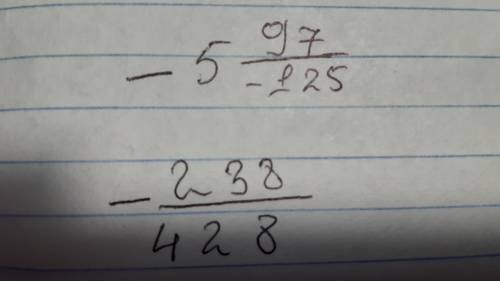 97
- 5
-125
238
-
428